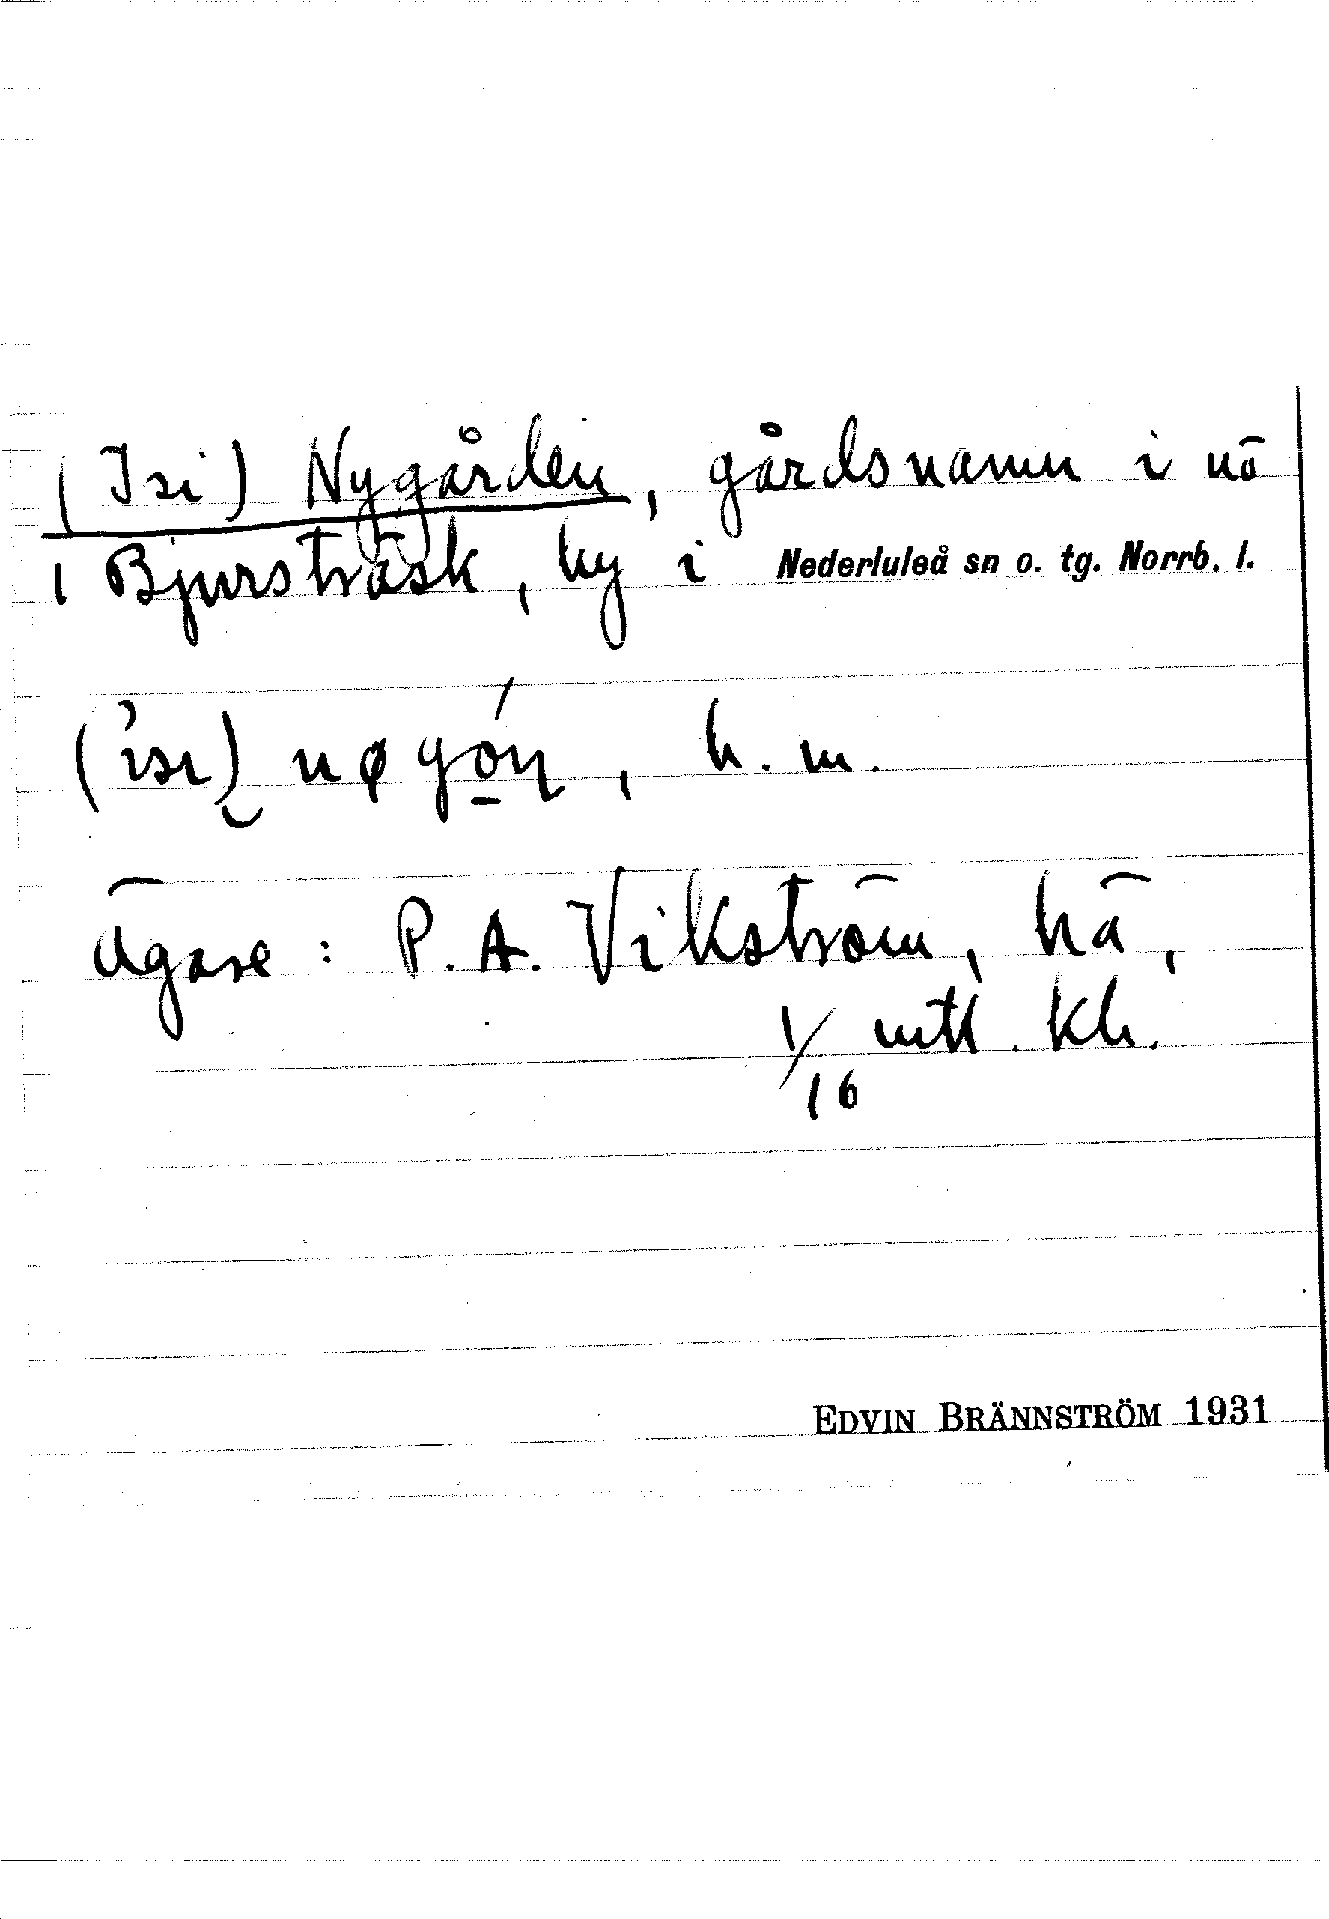 (Isi) Nygården, gårdsnamn i nö
i Bjursträsk, by i Nederluleå sn o. tg. Norrb. l.
(ísı) nøgón, b. m.
Ägare: P. A. Vikström, hä,
1/16 mtl. kb.
EDVIN BRÄNNSTRÖM 1931